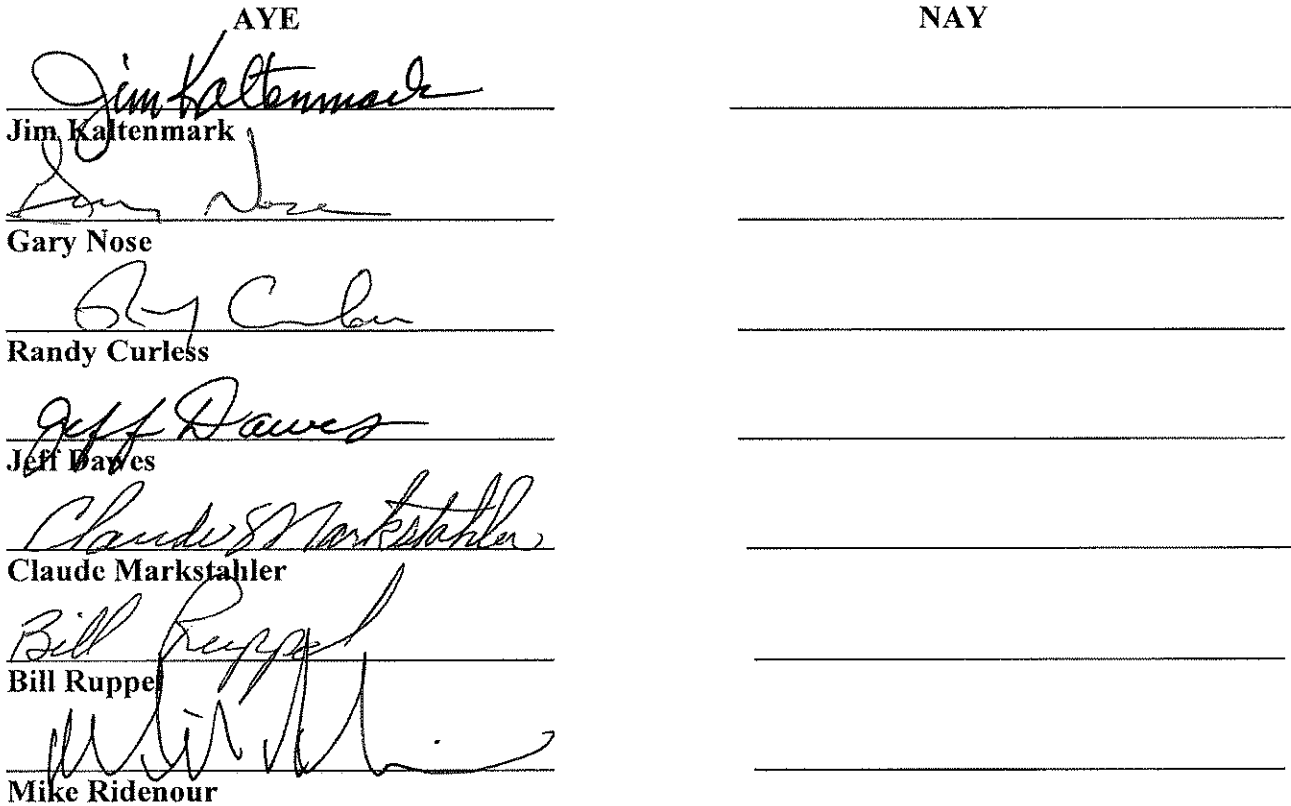 AYE NAY
Jim Kaltenmark
Jim Kaltenmark
Gary Nose
Gary Nose
Randy Curless
Jeff Dawes
Jeff Dawes
Claude S Markstahler
Claude Markstahler
Bill Ruppel
Bill Ruppel
Mike Ridenour